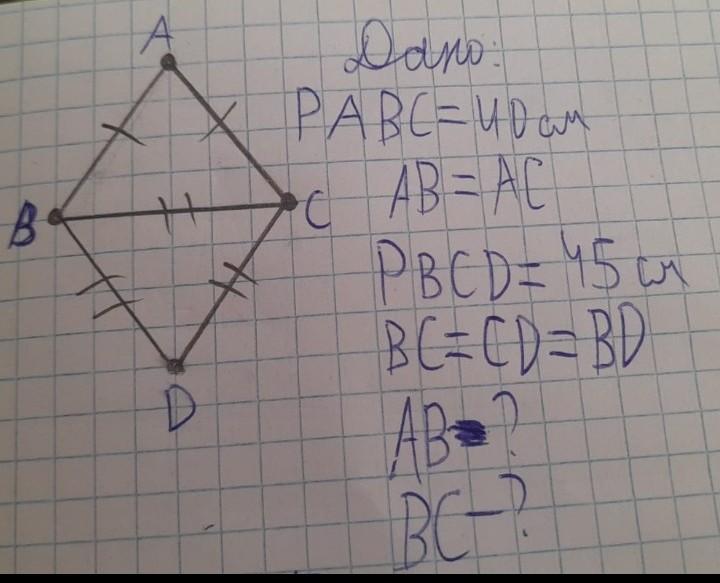 A
B
C
D
Дано:
PABC=40см
AB=AC
PBCD=45см
BC=CD=BD
AB-?
BC-?